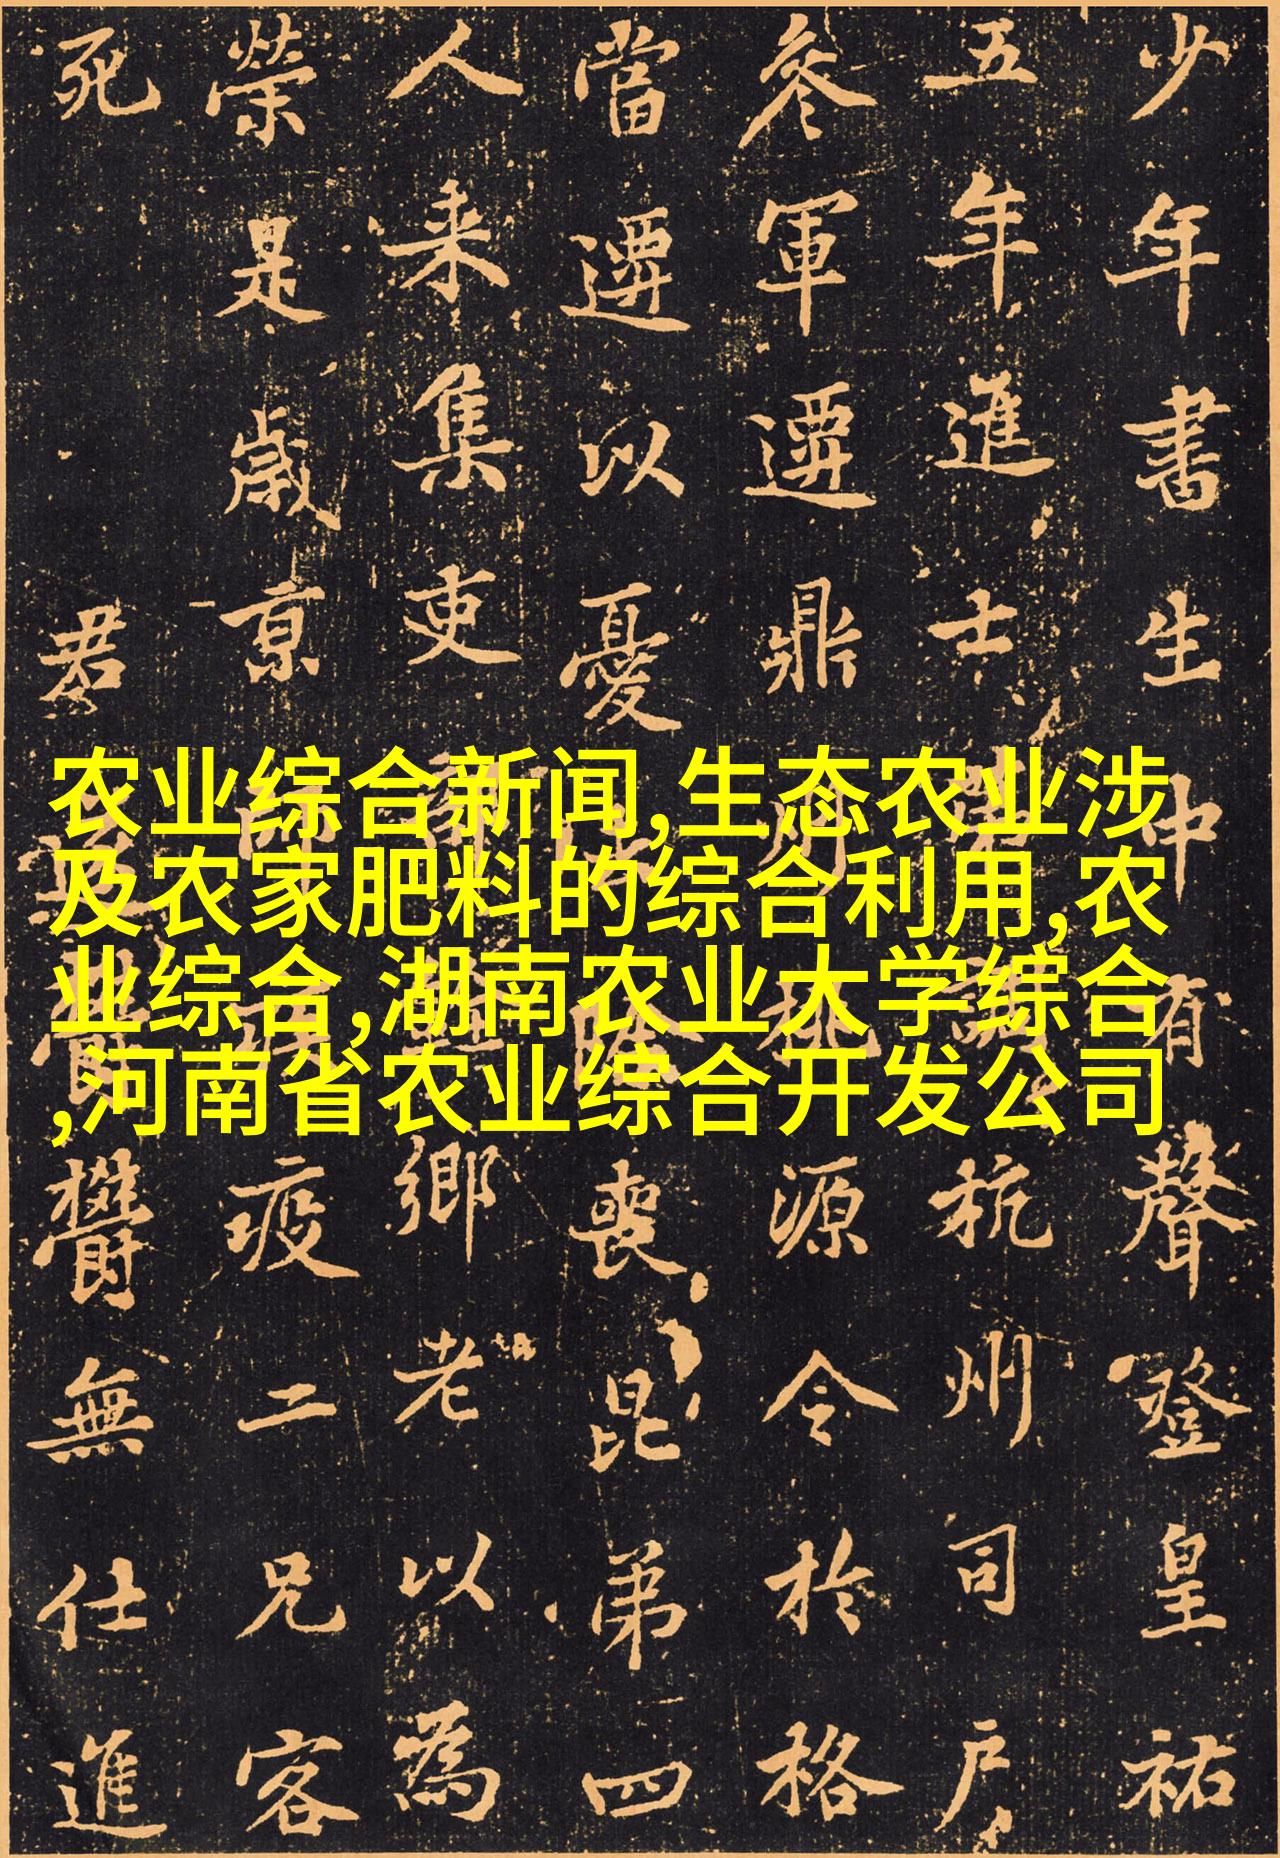 农业综合新闻,生态农业涉
及农家肥料的综合利用,农
业综合,湖南农业大学综合
,河南省农业综合开发公司
少年書生中有聲登皇祐
五年進士第調杭州司戶
參軍遷鼎州桃源令於格
當遷以憂除喪昆弟四
人来集吏部鄉老以為
榮是歲京師疫二兄客
死君益鬱鬱無仕進